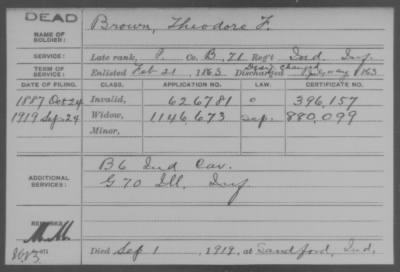 DEAD
NAME OF SOLDIER: Brown, Theodore F.
SERVICE: Late rank, P. Co. B, 71 Reg't Ind. Inf.
TERM OF SERVICE: Enlisted Feb 21, 1863 Discharged 1863
DATE OF FILING. CLASS. APPLICATION NO. LAW. CERTIFICATE NO.
1887 Oct 24 Invalid, 626781 o 396,157
1919 Sep 24 Widow, 1146,673 sep. 880,099
Minor,
ADDITIONAL SERVICES: B 6 Ind Cav.
G 70 Ill. Inf
REMARKS:
Died Sep 1, 1919, at Sandford, Ind.